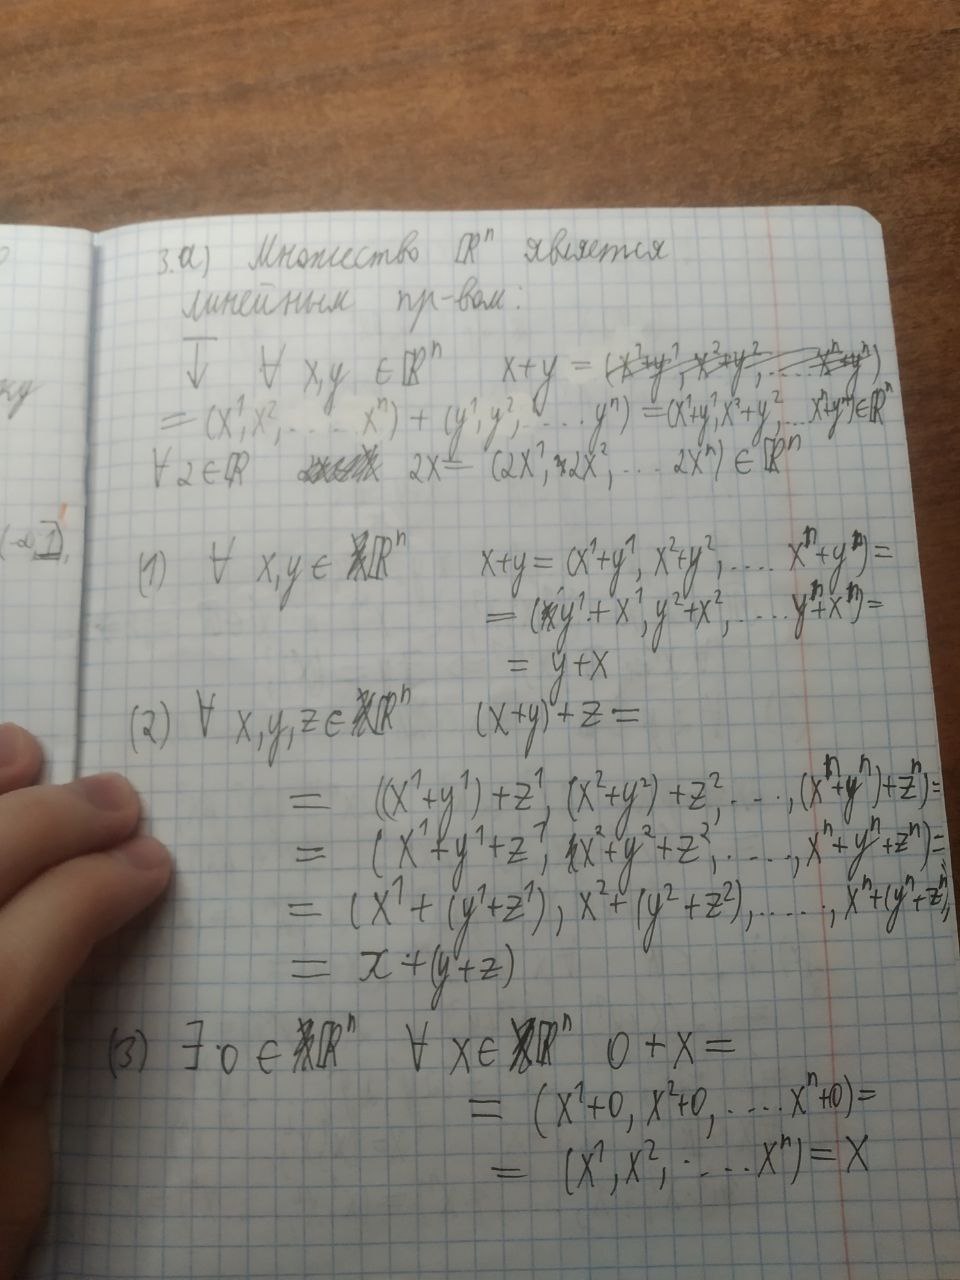 3.а) Множество ℝⁿ является
линейным пр-вом:
↓ ∀ x,y ∈ ℝⁿ x+y = (x¹+y¹, x²+y², .... xⁿ+yⁿ)
= (x¹, x², ..... xⁿ) + (y¹, y², .... yⁿ) = (x¹+y¹, x²+y², ... xⁿ+yⁿ) ∈ ℝⁿ
∀ 2 ∈ ℝ 2x = (2x¹, 2x², .... 2xⁿ) ∈ ℝⁿ
(-∞, 1],
(1) ∀ x,y ∈ ℝⁿ x+y = (x¹+y¹, x²+y², .... xⁿ+yⁿ) =
= (y¹+x¹, y²+x², .... yⁿ+xⁿ) =
= y+x
(2) ∀ x,y,z ∈ ℝⁿ (x+y)+z =
= ((x¹+y¹)+z¹, (x²+y²)+z², ...., (xⁿ+yⁿ)+zⁿ) =
= (x¹+y¹+z¹, x²+y²+z², ....., xⁿ+yⁿ+zⁿ) =
= (x¹+(y¹+z¹), x²+(y²+z²), ....., xⁿ+(yⁿ+zⁿ)
= x+(y+z)
(3) ∃ 0 ∈ ℝⁿ ∀ x ∈ ℝⁿ 0+x =
= (x¹+0, x²+0, .... xⁿ+0) =
= (x¹, x², ..... xⁿ) = x